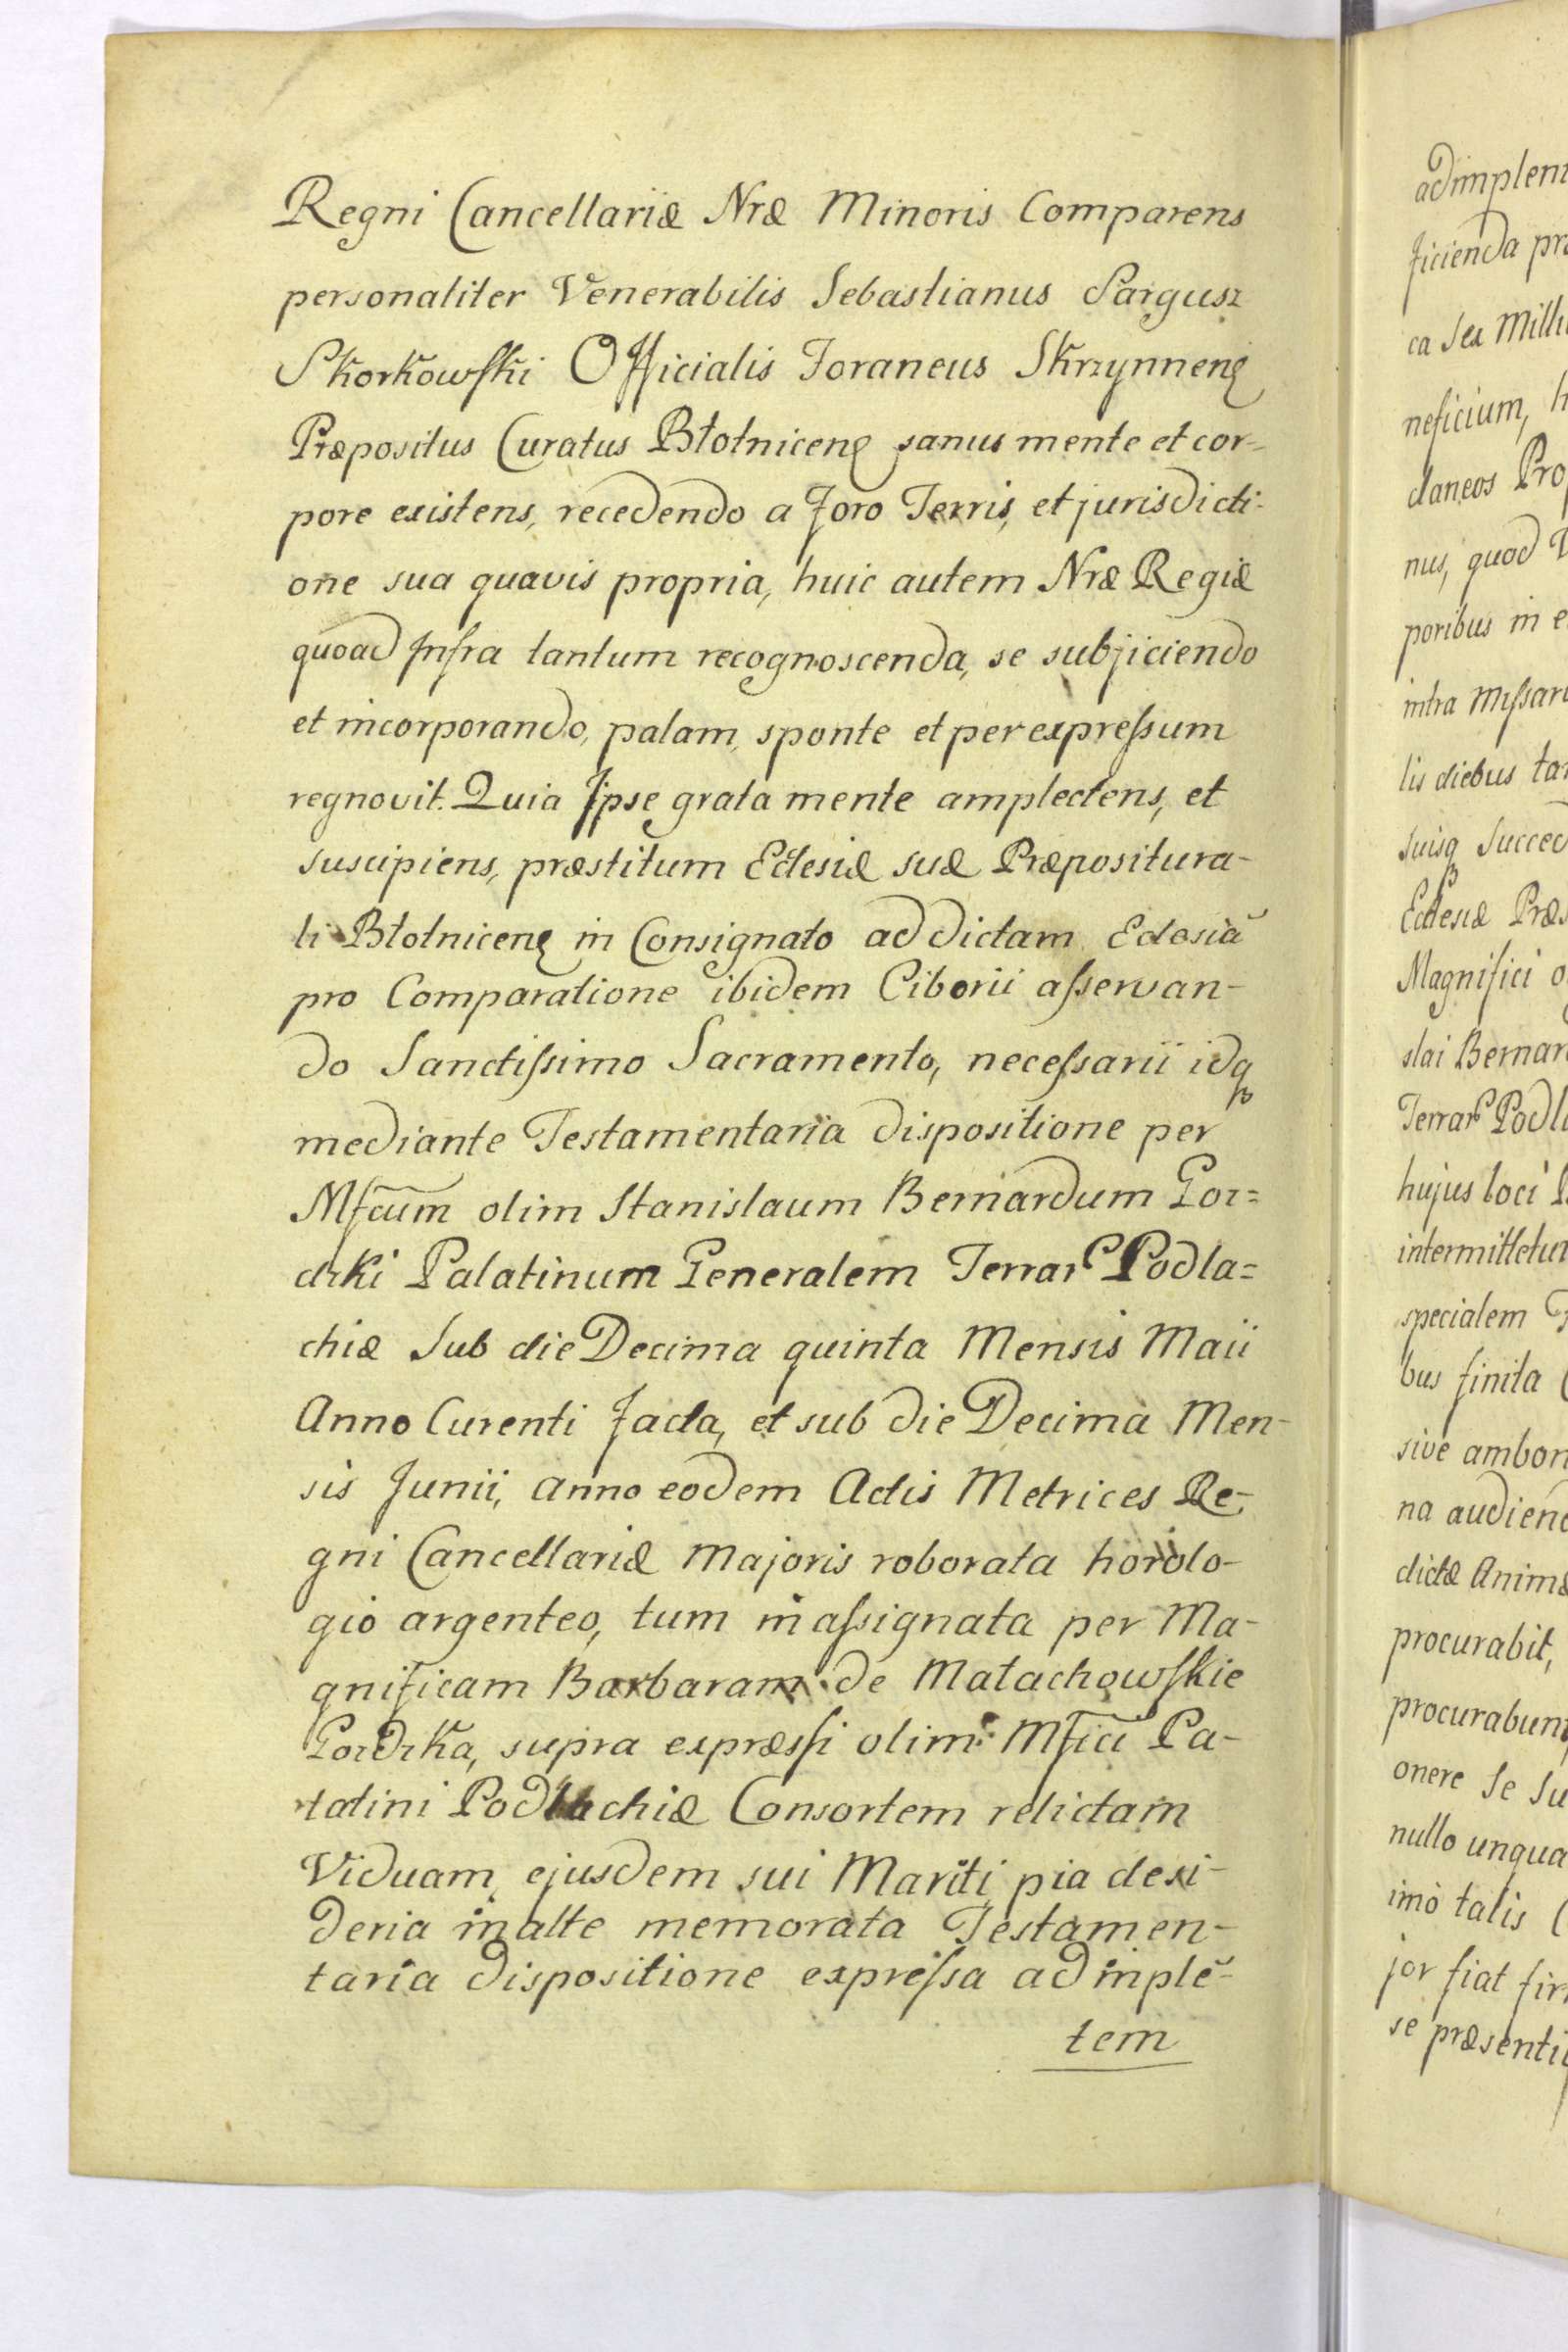 Regni Cancellariæ Nræ Minoris Comparens
personaliter Venerabilis Sebastianus Sargusz
Skorkowski Officialis Foraneus Skrzynnenę
Præpositus Curatus Błotnicenę sanus mente et cor-
pore existens, recedendo a foro Terris, et jurisdicti-
one sua quavis propria, huic autem Nræ Regiæ
quoad Infra tantum recognoscenda, se subjiciendo
et incorporando, palam, sponte et per expressum
regnovit. Quia Ipse grata mente amplectens, et
suscipiens, præstitum Eclesiæ suæ Præpositura-
li Błotnicenę in Consignato ad dictam Eclesiã
pro Comparatione ibidem Ciborii asservan-
do Sanctissimo Sacramento, necessarii idq
mediante Testamentaria dispositione per
Mfcum olim Stanislaum Bernardum Goz=
dzki Palatinum Generalem Terrar Podla=
chiæ Sub die Decima quinta Mensis Maii
Anno Curenti facta, et sub die Decima Men-
sis Junii, anno eodem Actis Metrices Re-
gni Cancellariæ Majoris roborata horolo-
gio argenteo, tum in assignata per Ma-
gnificam Barbaram de Małachowskie
Gozdzka, supra expræssi olim Mfici Pa-
latini Podlachiæ Consortem relictam
Viduam, ejusdem sui Mariti pia desi-
deria in alte memorata Testamen-
taria dispositione expressa adimplẽ-
tem
adimplem
ficienda pr
ca Sex Milli
neficium, h
daneos Pro
nus, quod
poribus in e
intra Missar
lis diebus ta
suisq Succed
Eclesiæ Præ
Magnifici o
slai Bernar
Terrar Podl
hujus loci
intermittetur
specialem
bus finita
sive ambon
na audien
dictæ Animæ
procurabit,
procurabun
onere se su
nullo unqua
imò talis
jor fiat fir
se præsenti